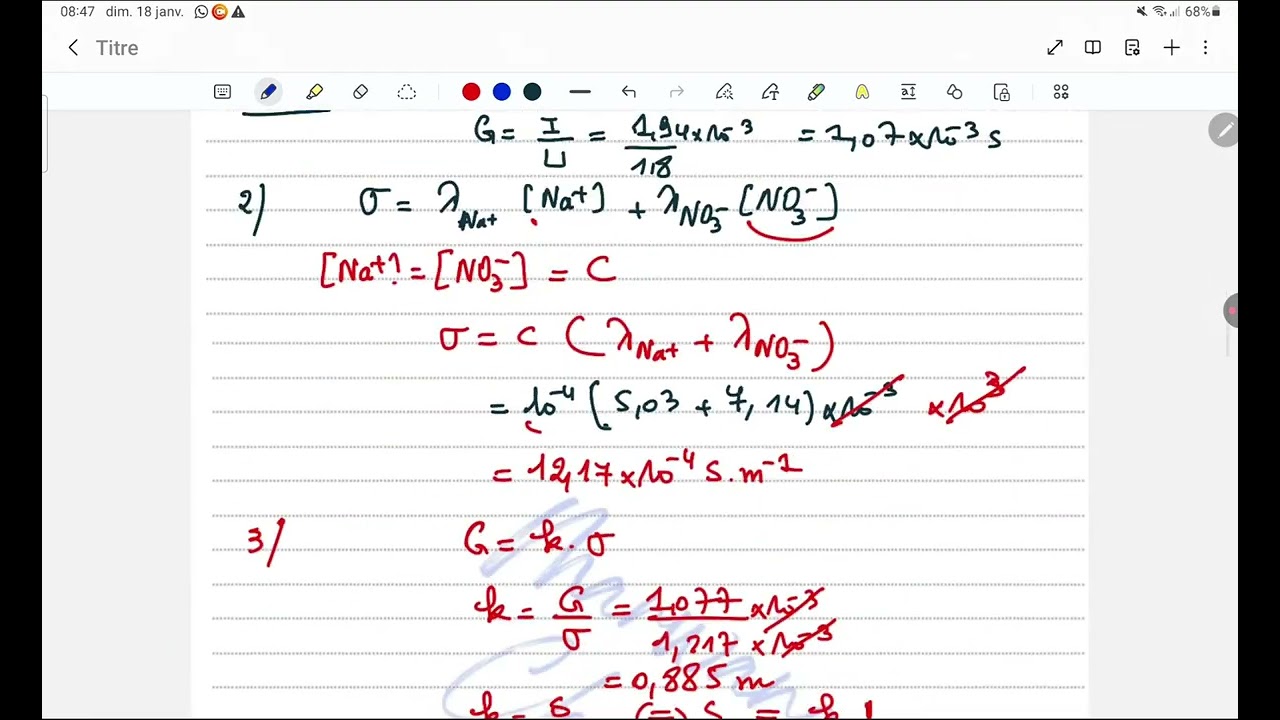 08:47 dim. 18 janv. 68%
Titre
G = I/U = 1,94×10⁻³/1,8 = 1,07×10⁻³ s
2) σ = λNa+ [Na+] + λNO₃⁻ [NO₃⁻]
[Na+] = [NO₃⁻] = C
σ = C (λNa+ + λNO₃⁻)
= 10⁻⁴ (5,03 + 7,14) ×10⁻³ ×10³
= 12,17×10⁻⁴ S.m⁻¹
3/ G = k.σ
k = G/σ = 1,077×10⁻³/1,217×10⁻³
= 0,885 m